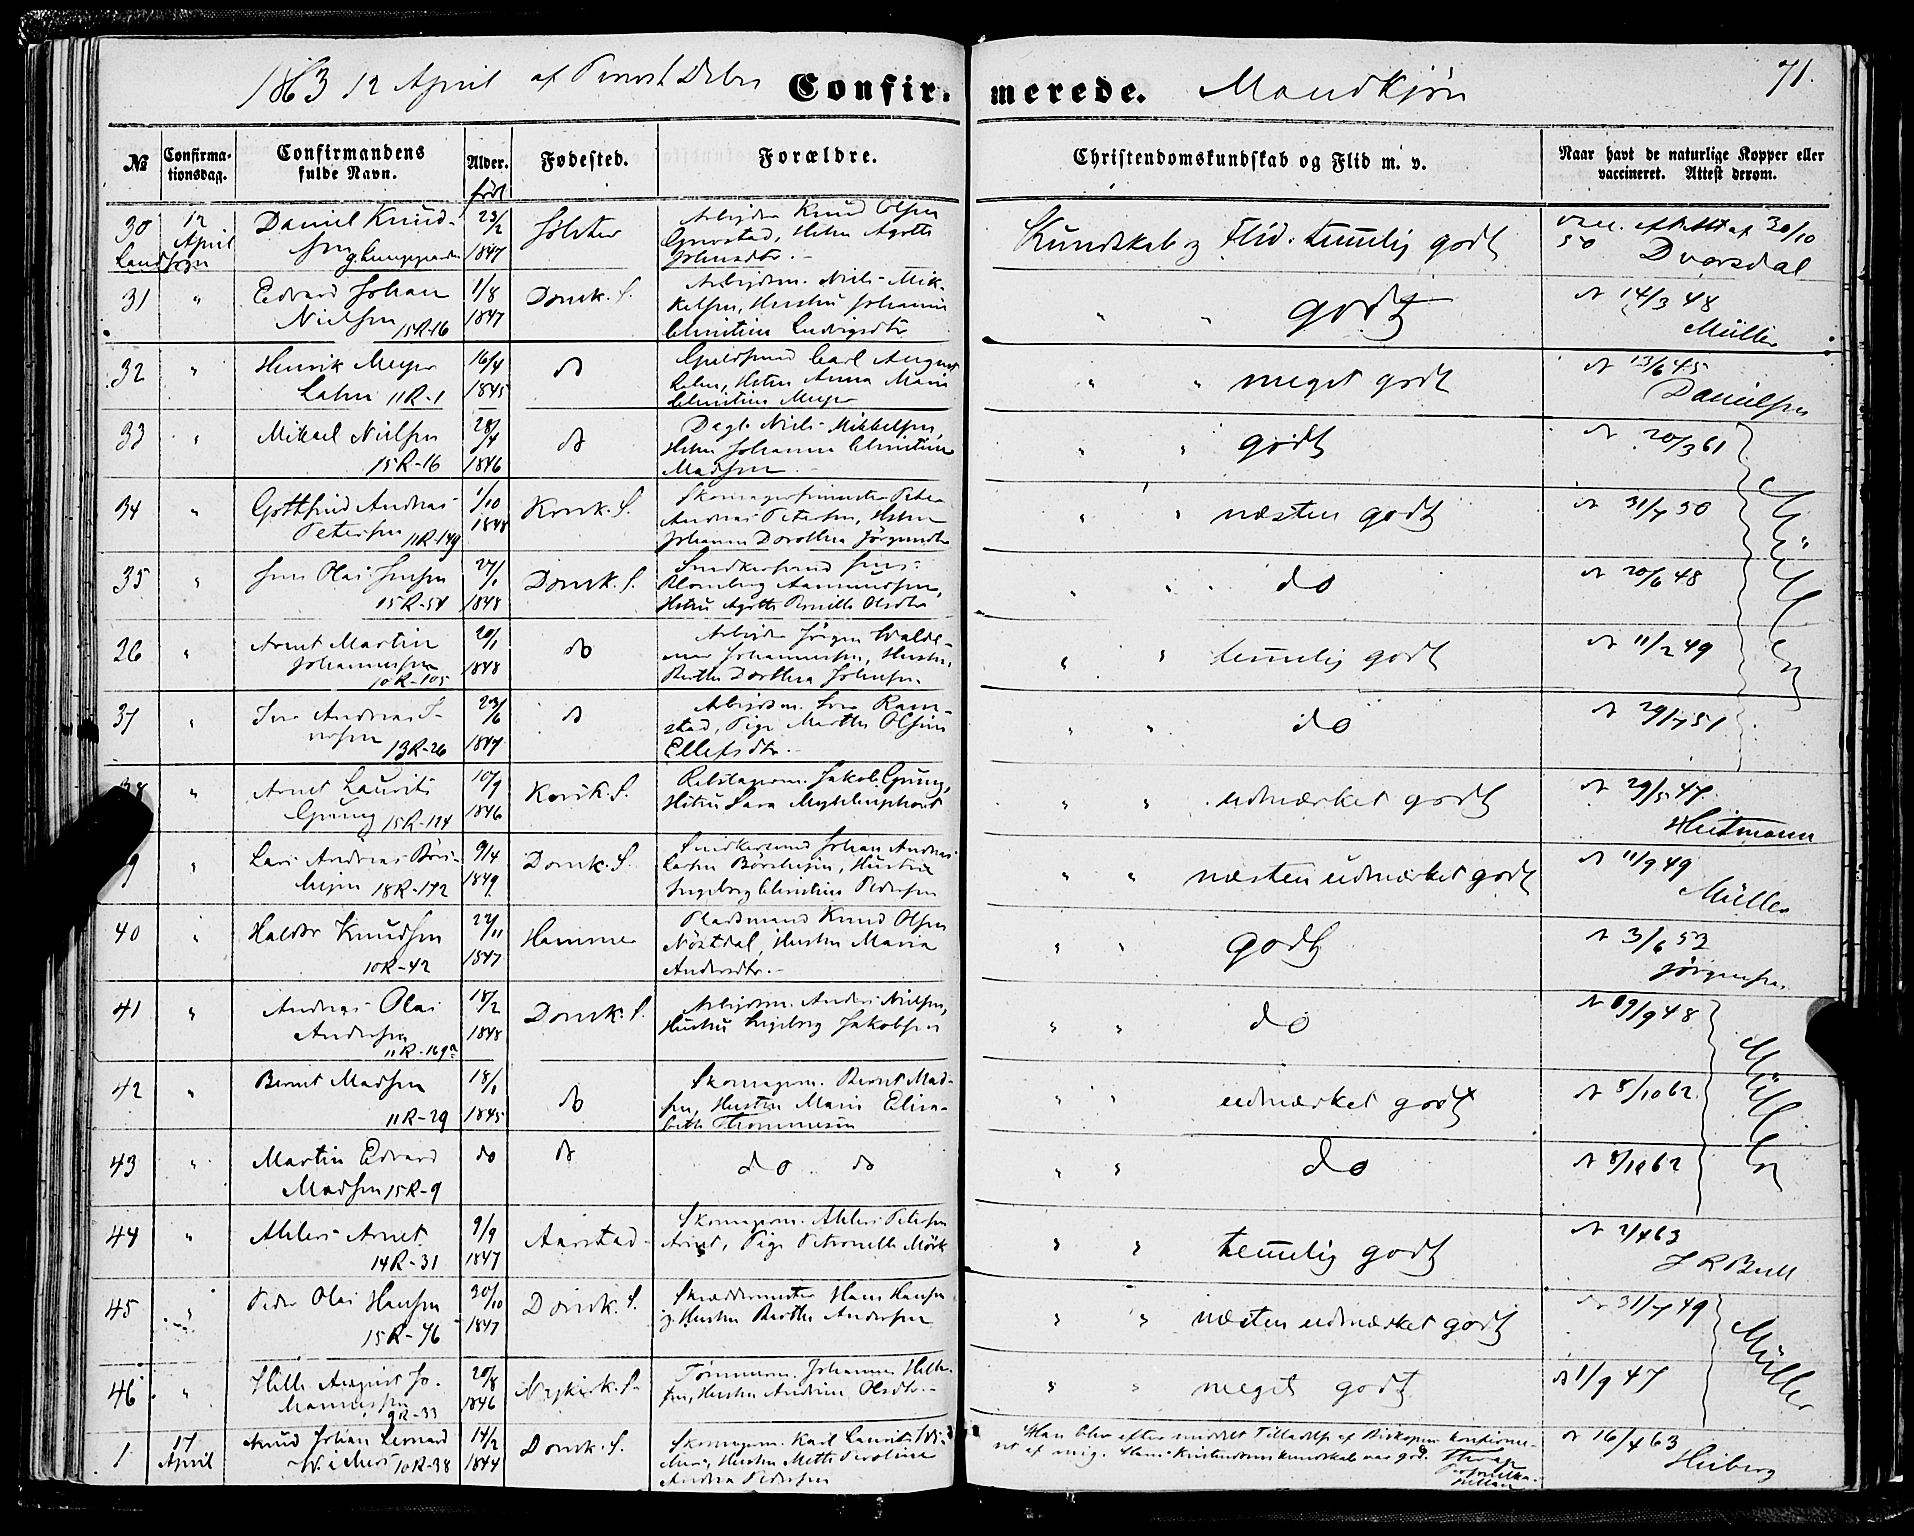 1863 12 April af Provst Debes Confir- merede. Mandkjøn 71.
№ Confirma- tionsdag. Confirmandens fulde Navn. Alder. født Fødested. Forældre. Christendomskundskab og Flid m. v. Naar havt de naturlige Kopper eller vaccineret. Attest derom.
30 12 April Daniel Knud- 23/2 1847 Jølster Arbeider Knud Olsen
Kundskab og Flid temlig godt 30/10 50
31 " Edvard Johan Nielsen 15R-16 1/8 1847 Domk. S. Arbeidsm. Niels Mik-
kelsen, Hustru Johanne
Christine Ludvigsdtr
" " godt 14/3 48 Müller
32 " Henrik Meyer Lahn 11R-1 16/4 1845 do Guldsmed Carl August
Lahn, Hstru Anna Maria
Christine Meyer
" " meget godt 13/6 45 Danielsen
33 " Mikael Nielsen 15R-16 28/4 1846 do Niels Mikkelsen,
Hstru Johanne Christine
Madsen
" " godt 20/3 61
34 " Gottfried Andreas Petersen 11R-149 1/10 1848 Korsk. S. Peter
Andreas Petersen, Hstru
Johanne Dorothea Jørgensdtr
" " næsten godt 31/7 50 Müller
35 " Jens Olai Jensen 15R-54 27/1 1848 Domk. S. Snedkersvend Jens
Hstru Agathe Pernille Olsdtr
" " do 20/6 48
36 " Arnt Martin Johannessen 10R-105 20/1 1848 do Arbeider Jørgen Walde-
mar Johannessen, Hustru
Berthe Dorthea Johnsen
" " temlig godt 11/2 49
37 " Iver Andreas I- versen 13R-26 23/6 1847 do Arbeidsm. Iver Ram-
stad, Pige Marthe Olsine
Ellefsdtr.
" " do 29/7 51
38 " Arnt Laurits Grung 15R-124 10/9 1846 Korsk. S. Jakob Grung,
Hstru Sara
" " udmærket godt 29/5 47 Heitmann
9 " Lars Andreas Børs- heim 18R-172 9/4 1849 Domk. S. Snedkersvend Johan Andreas
Larsen Børsheim, Hustru
Ingeborg Christine Pedersen
" " næsten udmærket godt 11/9 49 Müller
40 " Haldor Knudsen 10R-42 22/11 1847 Hammer Pladsmand Knud Olsen
Nøstdal, Hustru Maria
Andersdtr.
" " godt 3/6 53 Jörgensen
41 " Andreas Olai Andersen 11R-169a 18/2 1848 Domk. S. Arbeidsm. Anders Nielsen,
Hustru Ingeborg Jakobsen
" " do 9/9 48
42 " Bernt Madsen 11R-29 18/1 1845 do Skomagerm. Bernt Mad-
sen, Hustru Maria Elisa-
beth Thommesen
" " udmærket godt 8/10 62 Müller
43 " Martin Edvard Madsen 15R-9 do do do do
" " do 8/10 62
44 " Ahlers Arnet 14R-31 9/9 1847 Aarstad Skomagerm. Ahlers Petersen
Arnet, Pige Petronelle Mörk
" " temlig godt 2/4 63 J R Bull
45 " Peder Olai Hansen 15R-76 30/10 1847 Domk. S. Skræddermester Hans Hansen
og Hustru Berthe Andersen
" " næsten udmærket godt 31/7 49 Müller
46 " Helle August Jo- hannessen 9R-33 20/8 1846 Nykirk. S. Tømmerm. Johannes Helle-
sen, Hustru Andrine Olsdtr.
" " meget godt 1/9 47
1 17 April Knud Johan Leonard 10R-38 14/2 1844 Domk. S. Skomagerm. Karl Laurits
Hustru Mette Caroline
Andrea Pedersen
Han blev efter meddelt Tilladelse af Biskopen konfirme-
ret af mig. Hans Kristendomskundskab var god.
16/4 63 Heiberg